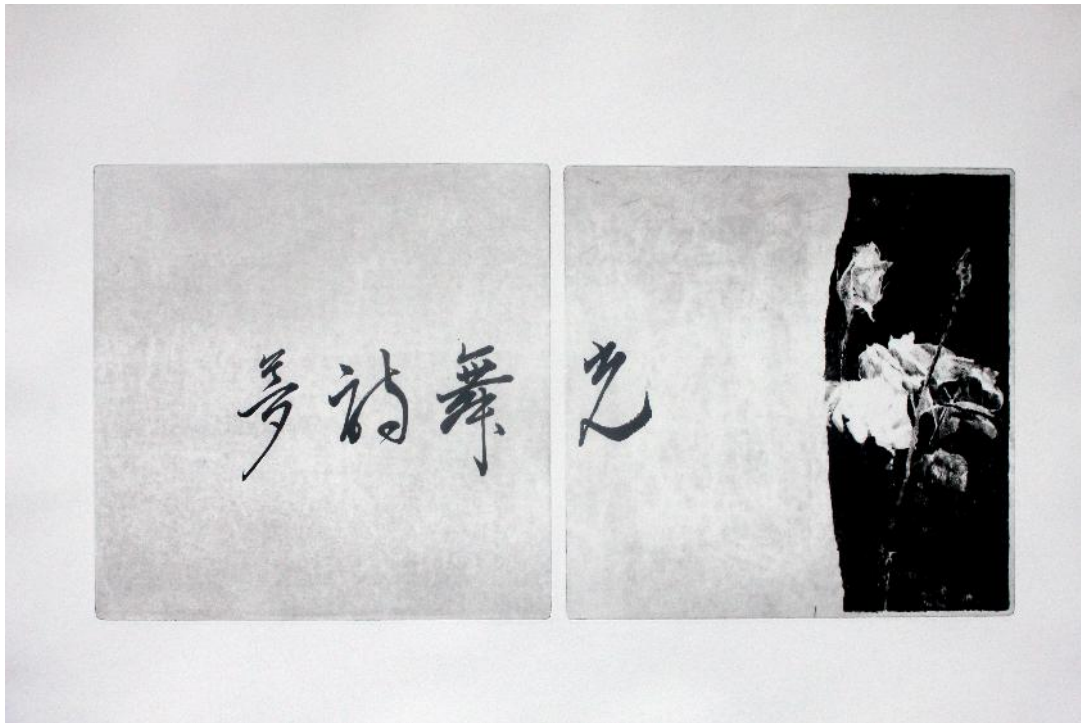 夢詩舞光